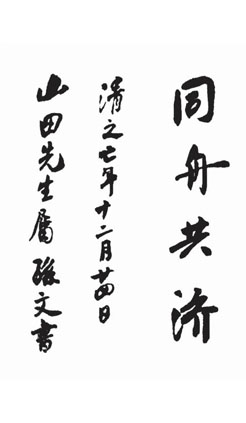 同舟共济
清之亡年十二月廿四日
山田先生属 孫文書